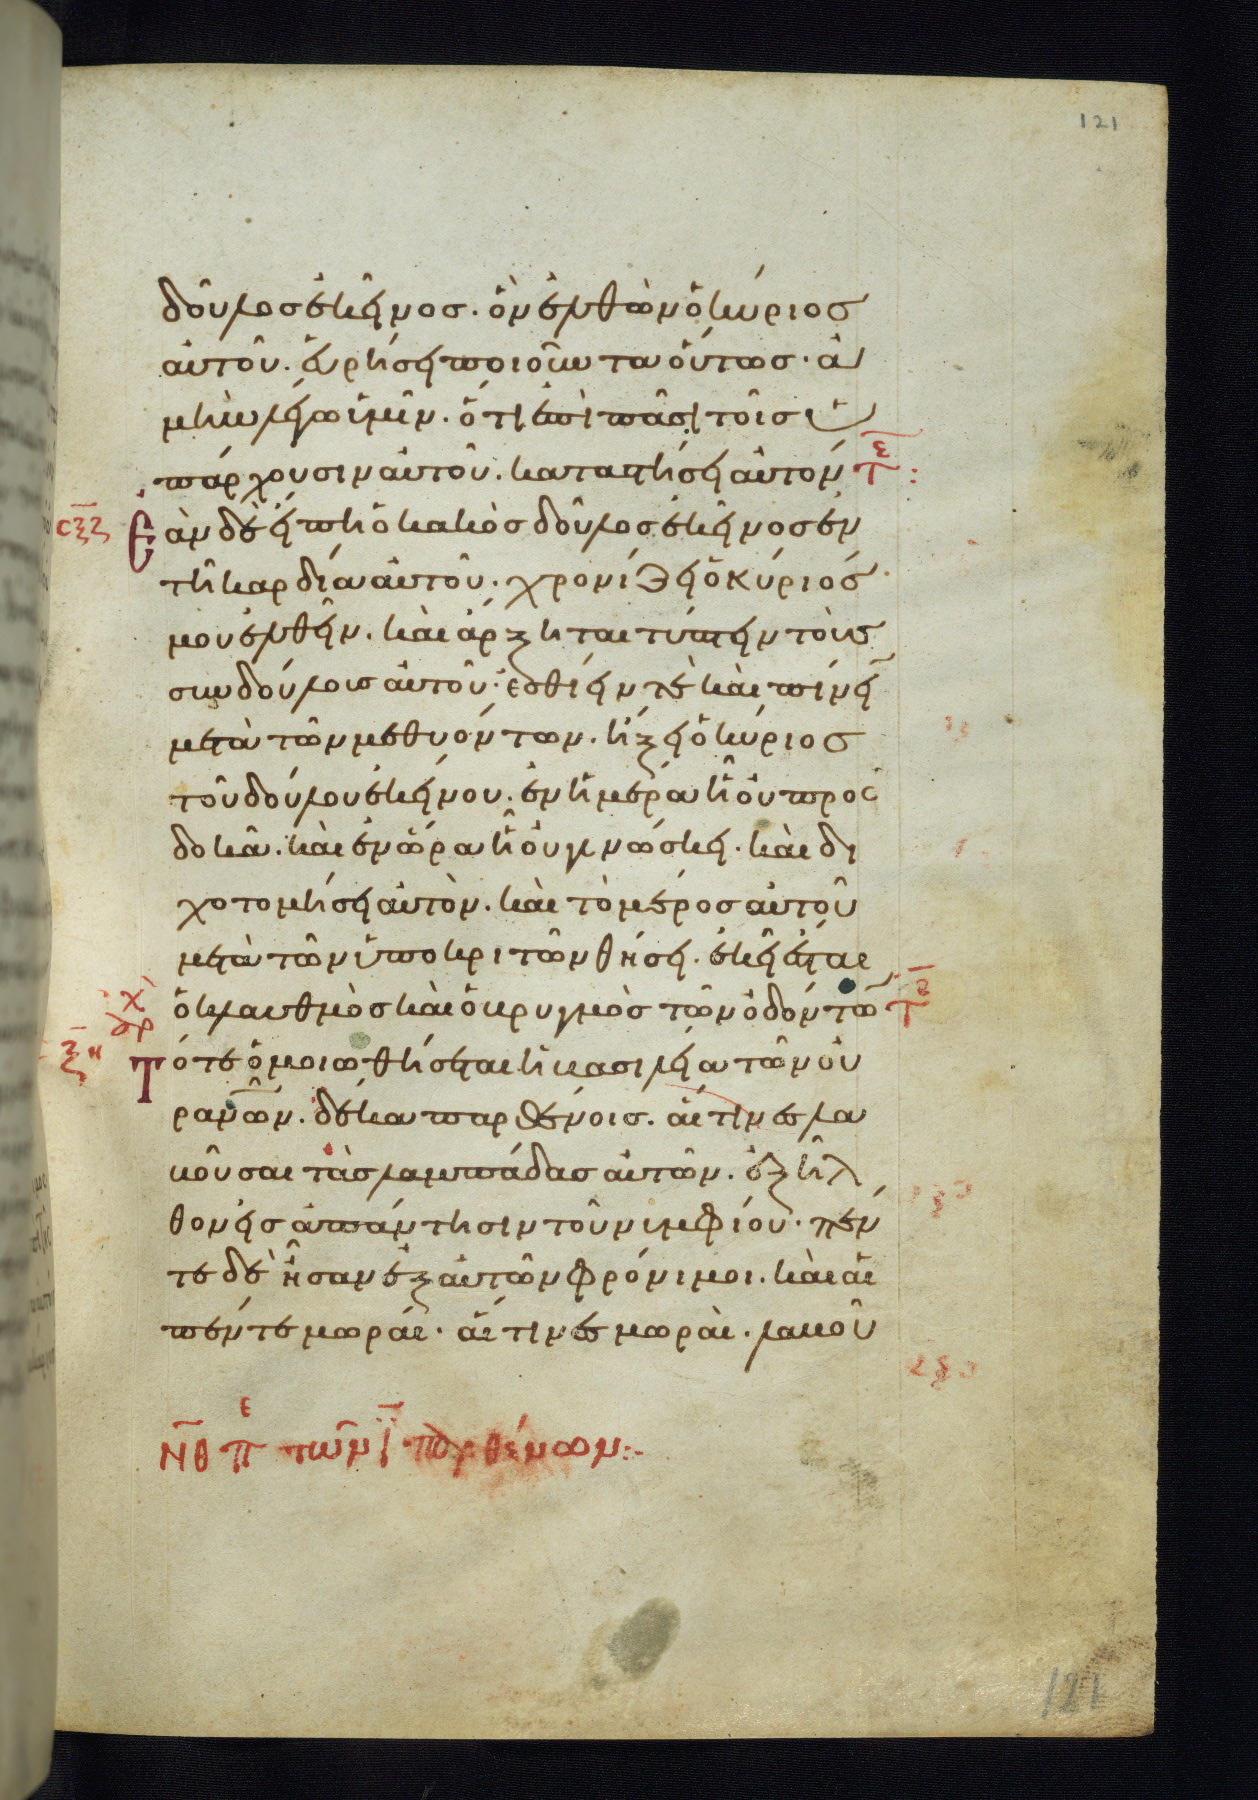 121
δοῦλος ἐκεῖνος. ὃν ἐλθὼν ὁ κύριος
αὐτοῦ. εὑρήσει ποιοῦντα οὕτως. ἀ
μὴν λέγω ὑμῖν. ὅτι ἐπὶ πᾶσι τοῖς ὑ
πάρχουσιν αὐτοῦ. καταστήσει αὐτόν
Ἐὰν δὲ εἴπη ὁ κακὸς δοῦλος ἐκεῖνος ἐν
τῆ καρδία αὐτοῦ. χρονίζει ὁ κύριός
μου ἐλθεῖν. καὶ ἄρξηται τύπτειν τοὺς
συνδούλοις αὐτοῦ. ἐσθίειν τὲ καὶ πίνει
μετὰ τῶν μεθυόντων. ἥξει ὁ κύριος
τοῦ δούλου ἐκείνου. ἐν ἡμέρα ἧ οὐ προσ
δοκᾶ. καὶ ἐν ὥρα ἧ οὐ γινώσκει. καὶ δι
χοτομήσει αὐτὸν. καὶ τὸ μέρος αὐτοῦ
μετὰ τῶν ὑποκριτῶν θήσει. ἐκεῖ ἔσται
ὁ κλαυθμὸς καὶ ὁ βρυγμὸς τῶν ὀδόντω
Τότε ὁμοιωθήσεται ἡ βασιλεία τῶν οὐ
ρανῶν. δέκα παρθένοις. αἵτινες λα
βοῦσαι τὰς λαμπάδας αὐτῶν. ἐξῆλ
θον εἰς ἀπάντησιν τοῦ νιμφίου. πέν
τε δὲ ἦσαν ἐξ αὐτῶν φρόνιμοι. καὶ αἱ
πέντε μωραί. αἵτινες μωραὶ. λαβοῦ
ΝΘ π ε τῶν ϊ παρθένων:-
121